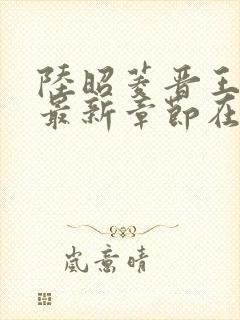 陸昭菱晋王
最新章節在
岚意晴